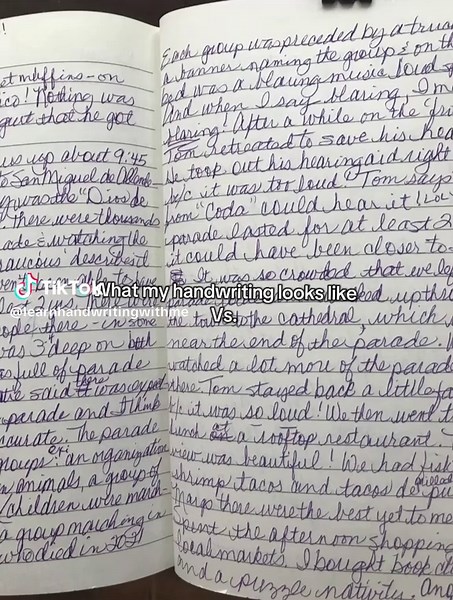 !
et muffins - on
ico! Nothing was
gust that he got
us up about 9:45
to San Miguel de Allende -
y was the "Dios de
. There were thousands
ade & watching the
raucous describe it
ople there - in some
was 3rd deep on both
as full of parade
said there was expect
parade and I think
curate. The parade
groups: ex: an organization
n animals, a group of
children were march
a group marching in
who died in 2021
Each group was preceded by a truck
a banner naming the group & on the
bed was a blaring music loud
And when I say blaring, I m
blaring! After a while on the "fri
Tom retreated to save his hea
He took out his hearing aid right
b/c it was too loud! Tom says
from "Coda" could hear it! LOL
parade lasted for at least 2
it could have been closer to
It was so crowded that we
up thro
the to the cathedral, which
near the end of the parade. W
watched a lot more of the parade
there. Tom stayed back a little fa
b/c it was so loud! We then went t
lunch at a rooftop restaurant.
view was beautiful! We had fish
shrimp tacos and tacos de pu
Margs there were the best yet to me
Spent the afternoon shopping
local markets. I bought book
and a puzzle nativity. And
TikTok
@learnhandwritingwithme
What my handwriting looks like
Vs.